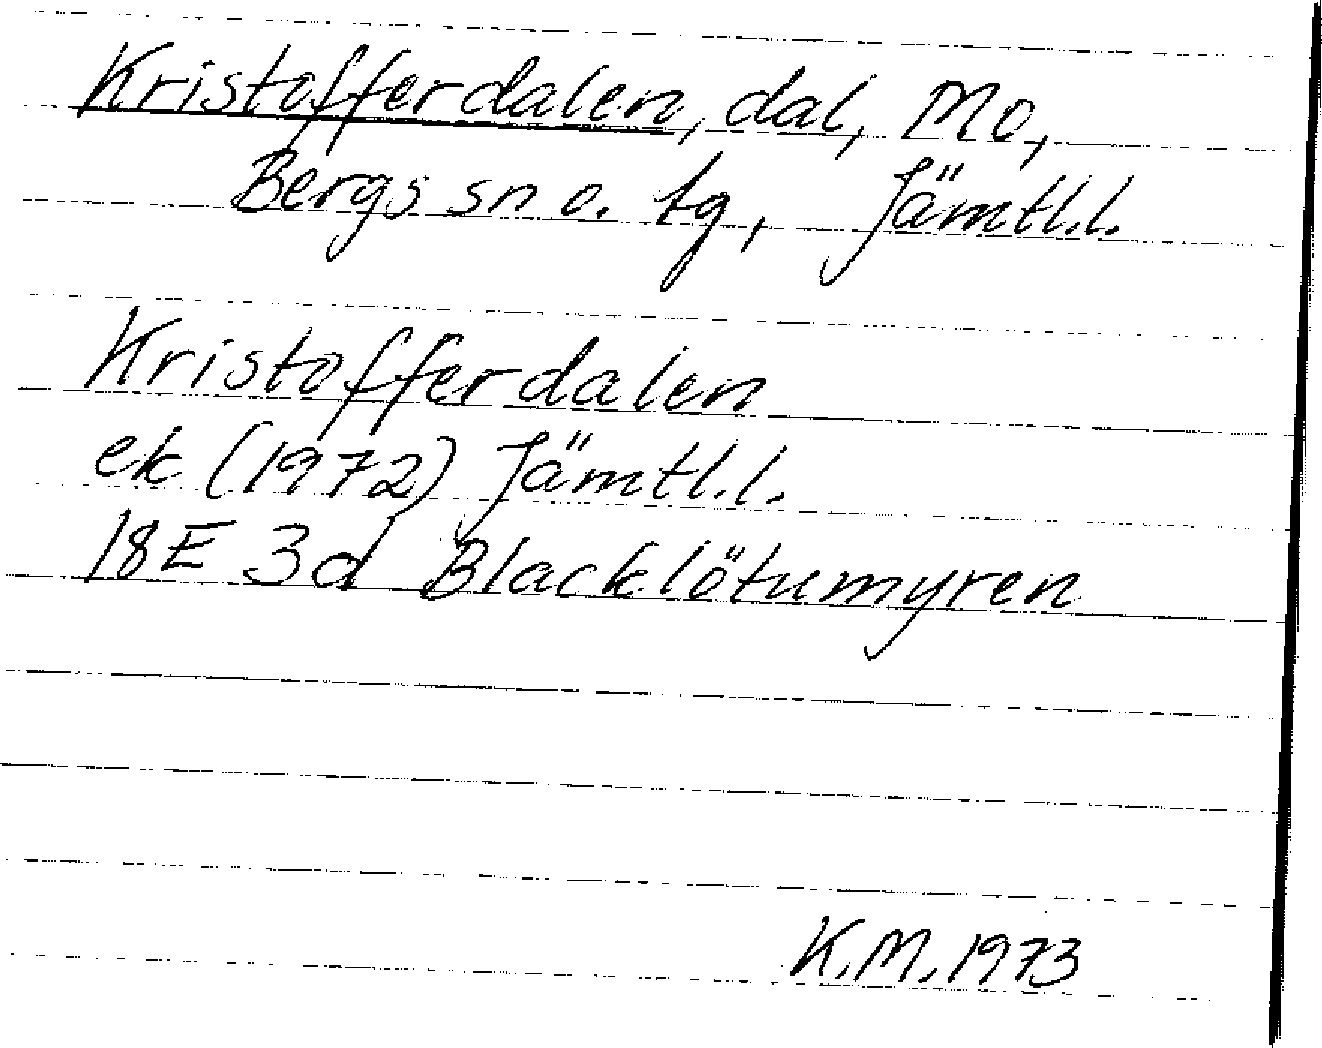 Kristofferdalen, dal, Mo,
Bergs sn o. tg, Jämtl.l.
Kristofferdalen
ek (1972) Jämtl.l.
18E 3d Blacklötumyren
K.M. 1973